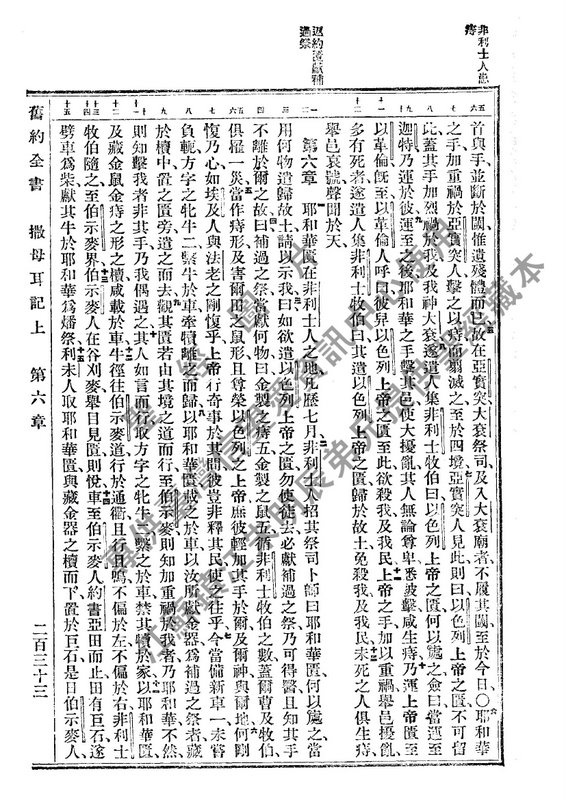 非利士人患
痔
返約匱獻補
過祭
首與手並斷於閾惟遺殘體而已故在亞實突大袞祭司及入大袞廟者不履其閾至於今日○耶和華
之手加重禍於亞實突人擊之以痔而翦滅之至於四境亞實突人見此則曰以色列上帝之匱不可留
此蓋其手加烈禍於我及我神大袞遂遣人集非利士牧伯曰以色列上帝之匱何以處之僉曰當運至
迦特乃運於彼運至之後耶和華之手擊其邑使大擾亂其人無論尊卑悉被擊咸生痔乃運上帝匱至
以革倫旣至以革倫人呼曰彼舁以色列上帝之匱至此欲殺我及我民上帝之手加以重禍舉邑擾亂
多有死者遂遣人集非利士牧伯曰其遣以色列上帝之匱歸於故土免殺我及我民未死之人俱生痔
舉邑哀號聲聞於天
第六章 耶和華匱在非利士人之地凡歷七月非利士人招其祭司卜師曰耶和華匱何以處之當
用何物遣歸故土請以示我曰如欲遣以色列上帝之匱勿使徒去必獻補過之祭乃可得醫且知其手
不離於爾之故曰補過之祭當獻何物曰金製痔五金製之鼠五循非利士牧伯之數蓋爾曹及牧伯
俱罹一災當作痔形及害爾田之鼠形且尊榮以色列之上帝庶彼輕其手於爾及爾神與爾地何剛
愎乃心如埃及人與法老之剛愎乎上帝行奇事於其間彼豈非釋其民使之往乎今當備新車一未嘗
負軛方字之牝牛二繫牛於車牽犢離之而歸以耶和華匱載之於車以汝所獻金器爲補過之祭者藏
於櫝中置之匱旁遣之而去觀其匱若由其境之道而行至伯示麥則知加重禍於我者乃耶和華不然
則知擊我者非其手乃我偶遇之其人如言而行取方字之牝牛二繫之於車禁其犢於家以耶和華匱
及藏金鼠金痔之形之櫝咸載於車牛徑往伯示麥道行於通衢且行且鳴不偏於左不偏於右非利士
牧伯隨之至伯示麥界伯示麥人在谷刈麥舉目見匱則悅車至伯示麥人約書亞田而止田有巨石遂
劈車爲柴獻其牛於耶和華爲燔祭利未人取耶和華匱與藏金器之櫝而下置於巨石是日伯示麥人
舊約全書 撒母耳記上 第六章 二百三十三